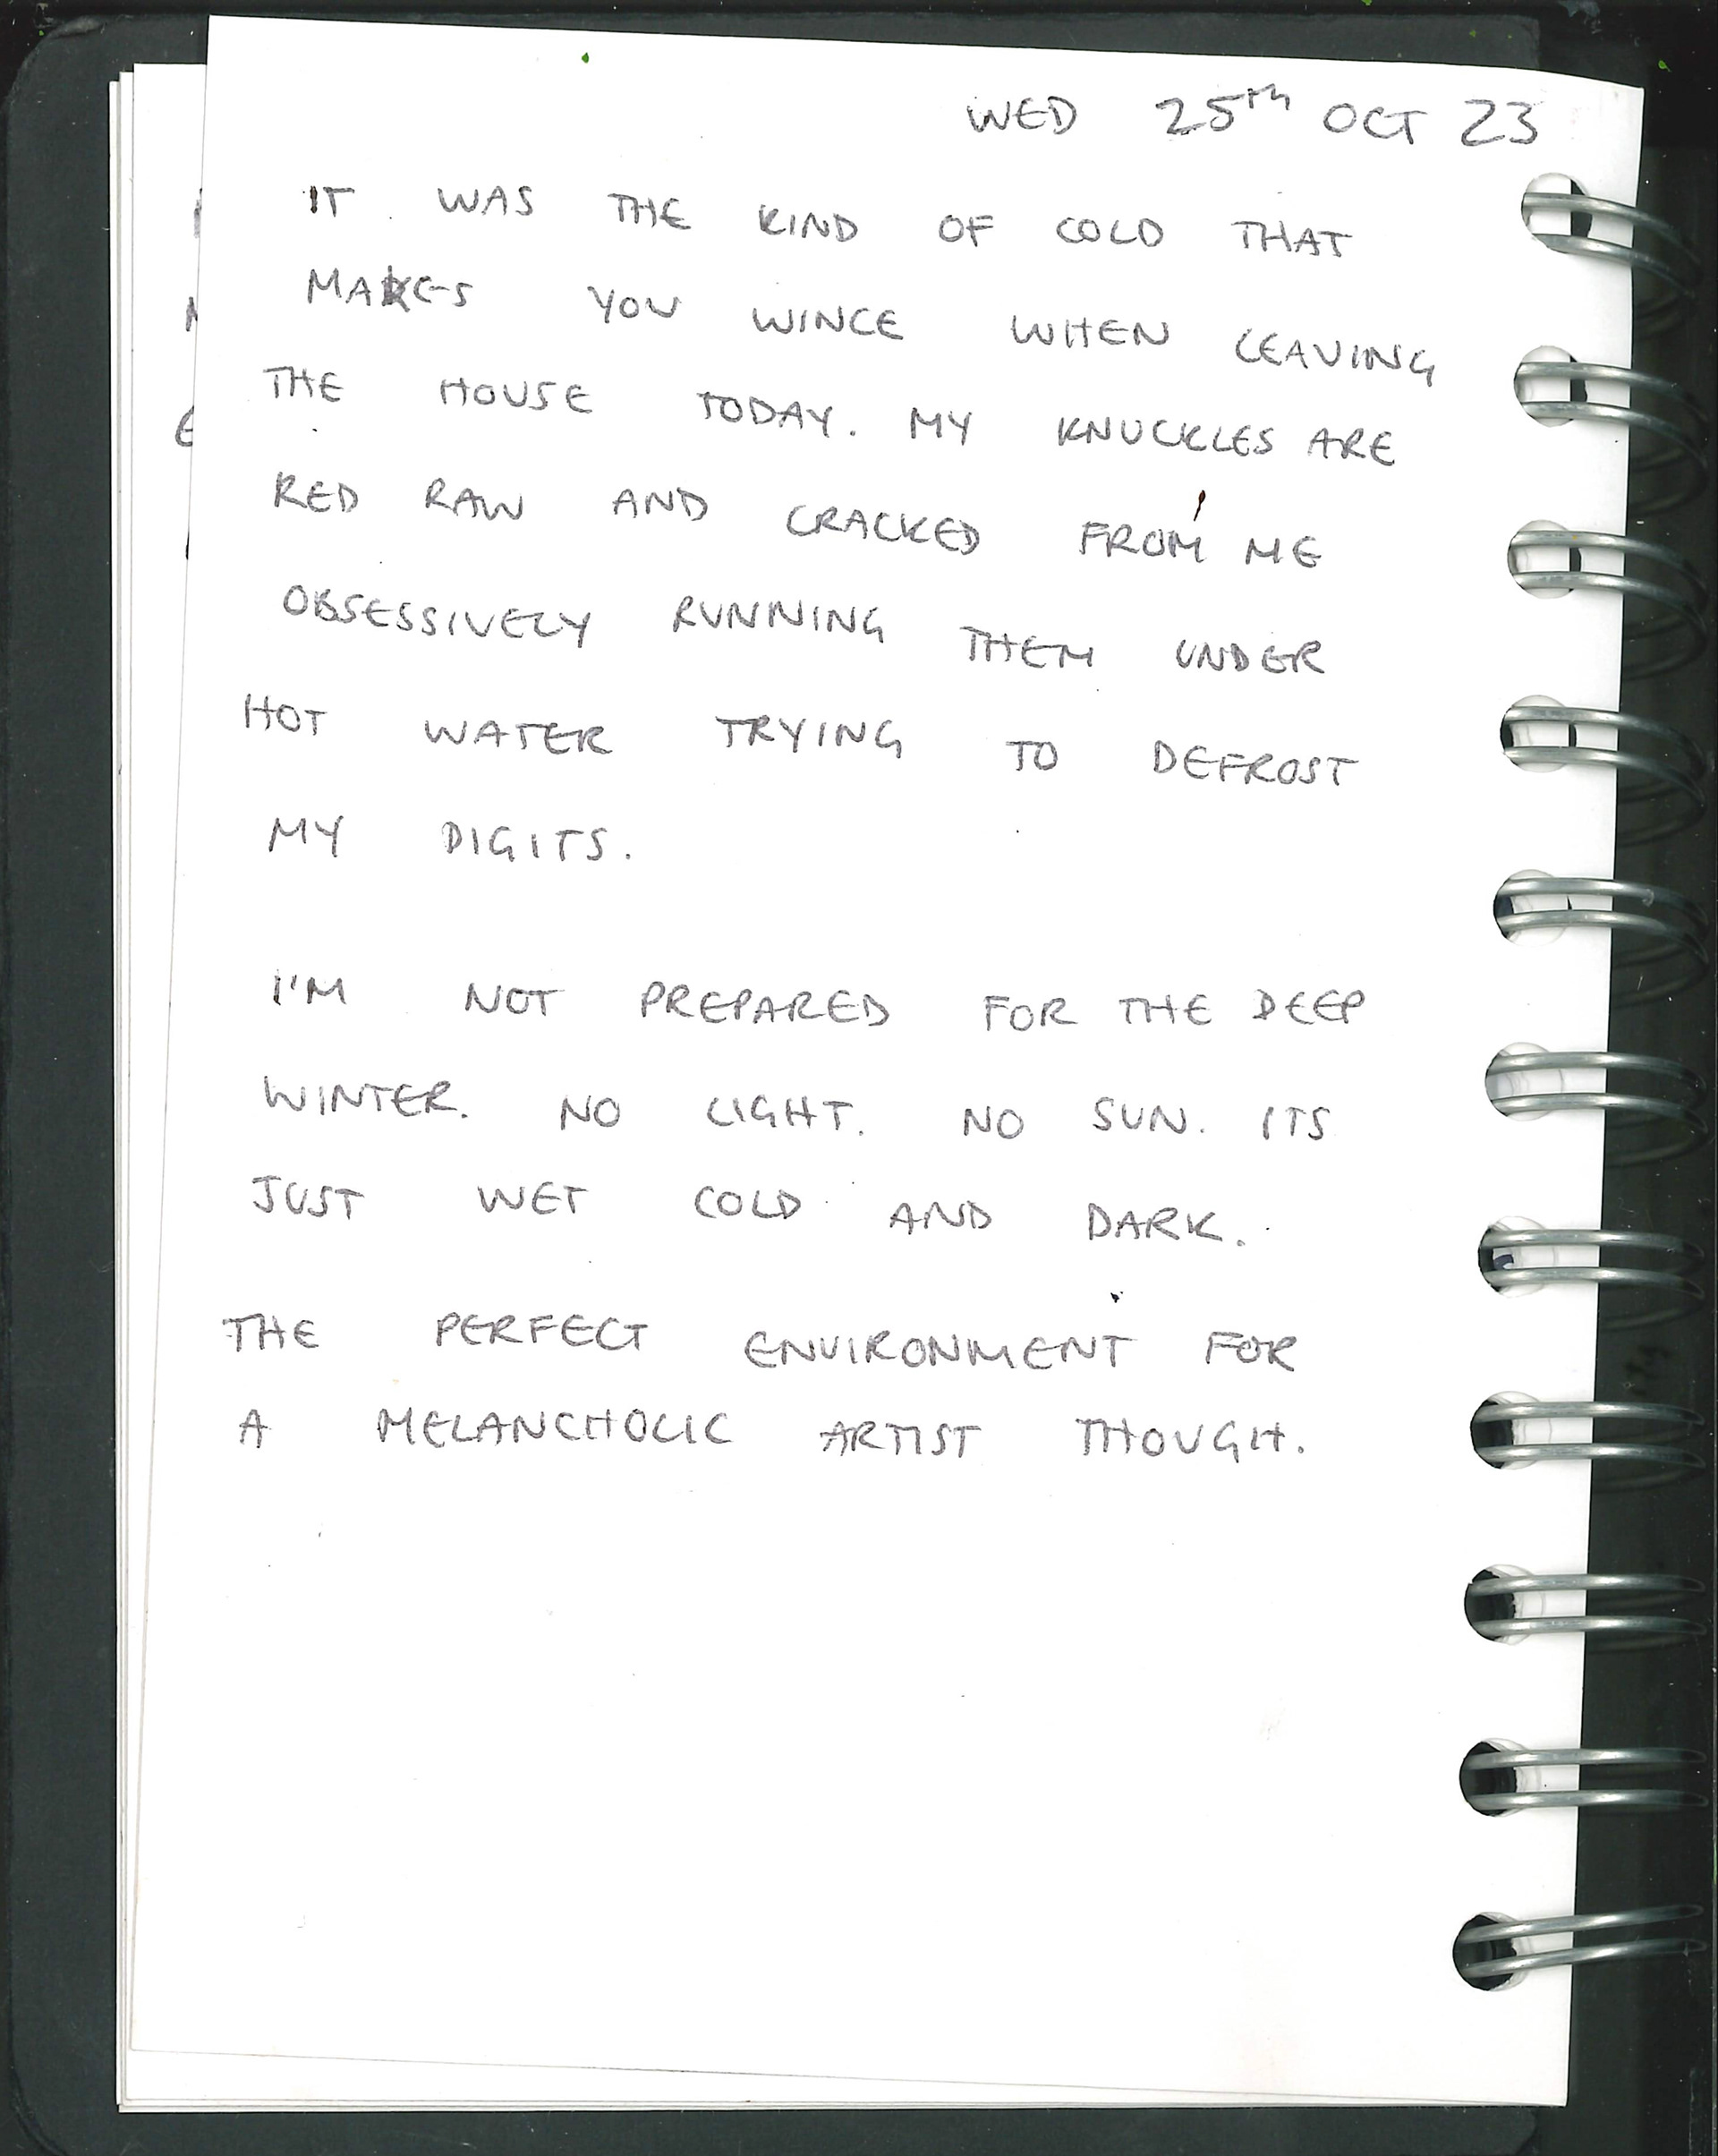 WED 25TH OCT 23
IT WAS THE KIND OF COLD THAT
MAKES YOU WINCE WHEN LEAVING
THE HOUSE TODAY. MY KNUCKLES ARE
RED RAW AND CRACKED FROM ME
OBSESSIVELY RUNNING THEM UNDER
HOT WATER TRYING TO DEFROST
MY DIGITS.
I'M NOT PREPARED FOR THE DEEP
WINTER. NO LIGHT. NO SUN. ITS
JUST WET COLD AND DARK.
THE PERFECT ENVIRONMENT FOR
A MELANCHOLIC ARTIST THOUGH.